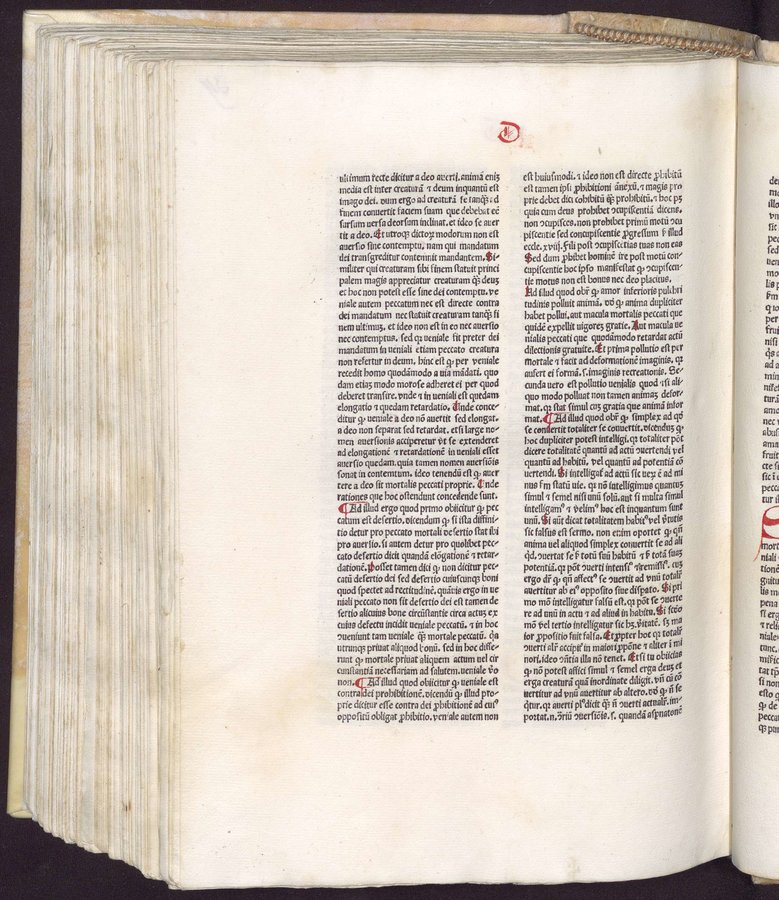 D
ultimum recte dicitur a deo averti. anima enĩ
media est inter creaturã ⁊ deum inquantũ est
imago dei. dum ergo ad creaturã se tanqᷓ ad
finem convertit faciem suam que debebat eẽ
sursum versa deorsum inclinat. et ideo se aver
tit a deo. Et utroqꝫ dictoꝝ modorum non est
aversio sine contemptu. nam qui mandatum
dei transgreditur contemnit mandantem. Si⸗
militer qui creaturam sibi finem statuit princi
palem magis appreciatur creaturam qᷓꝫ deuꝫ
et hoc non potest esse sine dei contemptu. ve
niale autem peccatum nec est directe contra
dei mandatum nec statuit creaturam tanqᷓꝫ fi
nem ultimuꝫ. et ideo non est in eo nec aversio
nec contemptus. sed qꝛ veniale fit preter dei
mandatum in veniali etiam peccato creatura
non refertur in deum. hinc est ꝙ per veniale
recedit homo quodãmodo a via mãdati. quo
dam etiaꝫ modo morose adheret ei per quod
deberet transire. vnde ⁊ in veniali est quedam
elongatio ⁊ quedam retardatio. Unde conce⸗
ditur ꝙ veniale a deo nõ avertit sed elongat.
a deo non separat sed retardat. etsi large no⸗
men aversionis acciperetur vt se extenderet
ad elongationẽ ⁊ retardationẽ in veniali esset
aversio quedam. quia tamen nomen aversiõis
sonat in contemtum. ideo tenendũ est ꝙ aver⸗
tere a deo sit mortalis peccati proprie. Unde
rationes que hoc ostendunt concedende sunt.
Ad illud ergo quod primo obiicitur ꝙ pec
catum est desertio. dicendum ꝙ si ista diffini⸗
tio detur pro peccato mortali desertio stat ibi
pro aversio. si autem detur pro quolibet pec⸗
cato desertio dicit quandã elõgationẽ ⁊ retar⸗
dationẽ. Posset tamen dici ꝙ non dicitur pec⸗
catũ desertio dei sed desertio cuiuscunqꝫ boni
quod spectet ad rectitudinẽ. quãvis ergo in ve
niali peccato non sit desertio dei est tamen de
sertio alicuius bone circũstantie circa actuꝫ ex
cuius defectu incidit veniale peccatũ. ⁊ in hoc
ꝯveniunt tam veniale qᷓꝫ mortale peccatũ. qꝛ
utrunqꝫ privat aliquod bonũ. sed in hoc diffe⸗
runt ꝙ mortale privat aliquem actum vel cir
cunstantiã necessariam ad salutem. veniale vo
non. Ad illud quod obiicitur ꝙ veniale est
contra dei prohibitionẽ. dicendũ ꝙ illud pro⸗
prie dicitur esse contra dei ꝓhibitionẽ ad cuiꝰ
oppositũ obligat ꝓhibitio. veniale autem non
est huiusmodi. ⁊ ideo non est directe ꝓhibitũ
est tamen ipsi ꝓhibitioni ãnexũ. ⁊ magis pro
prie debet dici cohibitũ qᷓꝫ prohibitũ. ⁊ hoc pꝫ
quia cum deus prohibet ꝯcupiscentiã dicens.
non ꝯcupisces. non prohibet primũ motũ ꝯcu
piscentie sed concupiscentie ꝓgressum vt illud
eccle. xviij. Fili post ꝯcupiscẽtias tuas non eas
Sed dum ꝓhibet hominẽ ire post motũ con⸗
cupiscentie hoc ipso manifestat ꝙ ꝯcupiscen⸗
tie motus non est bonus nec deo placitus.
Ad illud quod obiiciᷓ ꝙ amor inferioris pulchri
tudinis polluit animã. do ꝙ anima dupliciter
habet pollui. aut macula mortalis peccati que
quidẽ expellit vigorẽ gratie. Aut macula ve
nialis peccati que quodãmodo retardat actũ
dilectionis gratuite. Et prima pollutio est per
mortale ⁊ facit ad deformationẽ imaginis. qꝛ
aufert ei formã. s. imaginis recreationis. Se⸗
cunda vero est pollutio venialis quod ⁊si ali⸗
quo modo polluat non tamen animaꝫ defor⸗
mat. qꝛ stat simul cuꝫ gratia que animã infor
mat. Ad illud quod obiiciᷓ ꝙ simplex ad qd
se convertit totaliter se convertit. dicenduꝫ ꝙ
hoc dupliciter potest intelligi. qꝛ totaliter põt
dicere totalitatẽ quantũ ad actũ ꝯvertendi vel
quantũ ad habitũ. vel quantũ ad potentiã cõ
vertendi. Si intelligaᷓ ad actũ sic verũ ẽ ad mi
nus fm statũ vie. qꝛ nõ intelligimus quantuꝫ
simul ⁊ semel nisi unũ solũ. aut si multa simul
intelligamꝰ ⁊ velimꝰ hoc est inquantum sunt
unũ. Si aũt dicat totalitatem habitꝰ vel vtutis
sic falsus est sermo. non enim oportet ꝙ qñ
anima vel aliquod simplex convertit se ad ali
qd. ꝯvertat se ꝑ totũ suũ habitũ ⁊ ꝑ totã suaꝫ
potentiã. qꝛ põt ꝯverti intensiꝰ ⁊ remissiꝰ. cuꝫ
ergo dr̃ ꝙ qñ affectꝰ se ꝯvertit ad vnũ totalr̃
avertitur ab eiꝰ opposito sive dispato. Si pri
mo mõ intelligatur falsũ est. qꝛ põt se ꝯverte
re ad unũ in actu ⁊ ad aliud in habitu. Si scdo
mõ vel tertio intelligatur sic hꝫ. vitatẽ. sꝫ ma
ior ꝓpositio fuit falsa. Et propter hoc qꝛ totalr̃
ꝯverti alr̃ accipiᷓ in maiori ꝓpõne ⁊ aliter ĩ mi
nori. ideo ꝯñtia illa nõ tenet. Et si tu obiicias
ꝙ nõ potest affici simul ⁊ semel erga deus et
erga creaturã quã inordinate diligit. vñ cũ cõ
vertitur ad vnũ avertitur ab altero. do ꝙ nõ se
qᷓtur. qꝛ averti plꝰ dicit qᷓꝫ nõ ꝯverti actualr̃. im⸗
portat. n. ꝯriũ ꝯversiõis. s. quandã aspnatonẽ